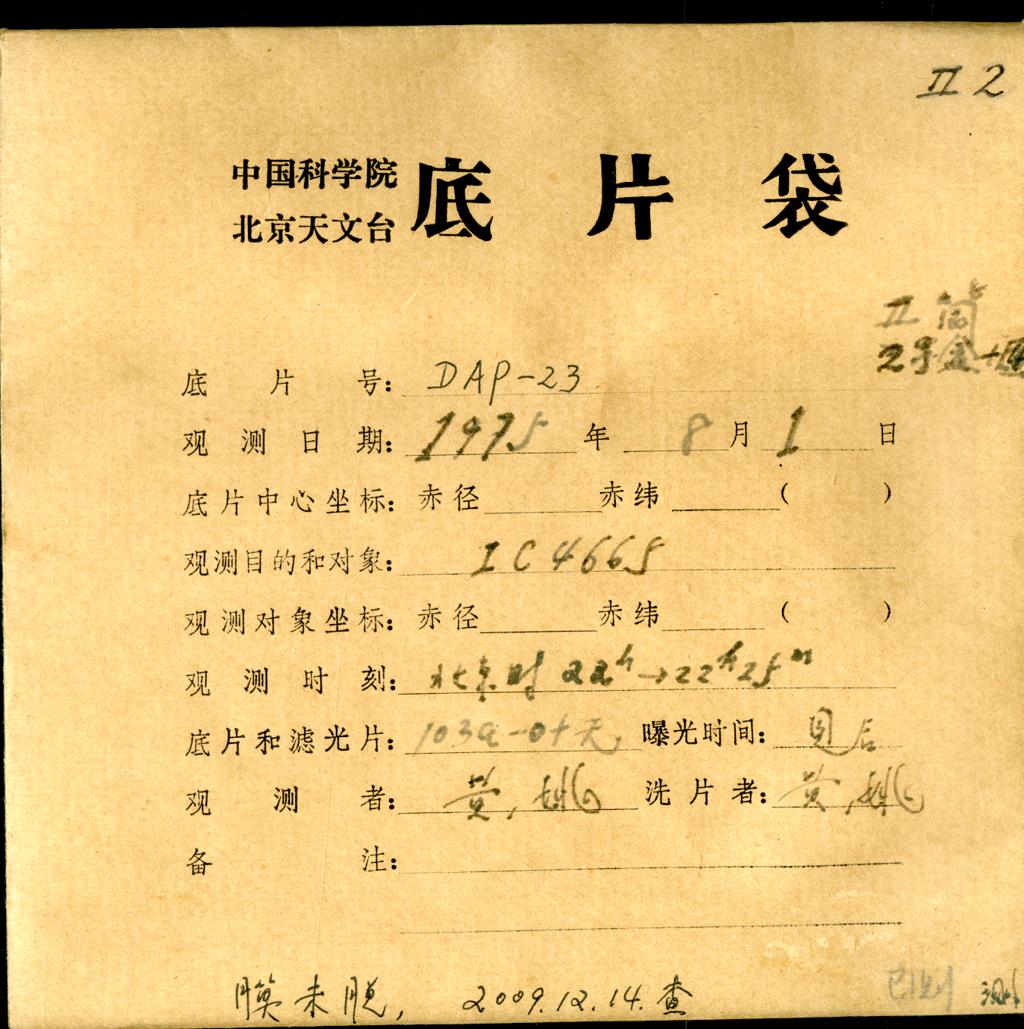 II 2
中国科学院
北京天文台
底片袋
II 简
底片号: DAP-23
观测日期: 1975 年 8 月 1 日
底片中心坐标: 赤径 赤纬 ( )
观测目的和对象: IC4665
观测对象坐标: 赤径 赤纬 ( )
观测时刻: 北京时 22h→22h25m
底片和滤光片: 103a-O+天 曝光时间: 见后
观测者: 黄,姚 洗片者: 黄,姚
备注:
膜未脱, 2009.12.14.查